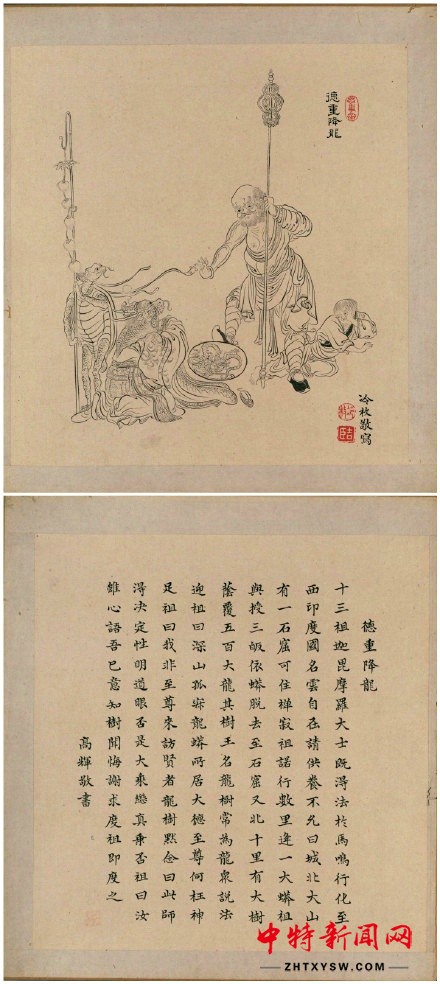 德重降龍
冷枚敬寫
德重降龍
十三祖迦毘摩羅大士既得法於馬鳴行化至
西印度國名雲自在請供養不允曰城北大山
有一石窟可住禪寂祖諾行數里逢一大蟒祖
與授三皈依蟒脫去至石窟又北十里有大樹
蔭覆五百大龍其樹王名龍樹常為龍衆說法
迎祖曰深山孤寂龍蟒所居大德至尊何枉神
足祖曰我非至尊來訪賢者龍樹默念曰此師
得決定性明道眼否是大乘繼真乘否祖曰汝
雖心語吾已意知樹聞悔謝求度祖即度之
高輝敬書
中特新闻网
ZHTXYSW.COM